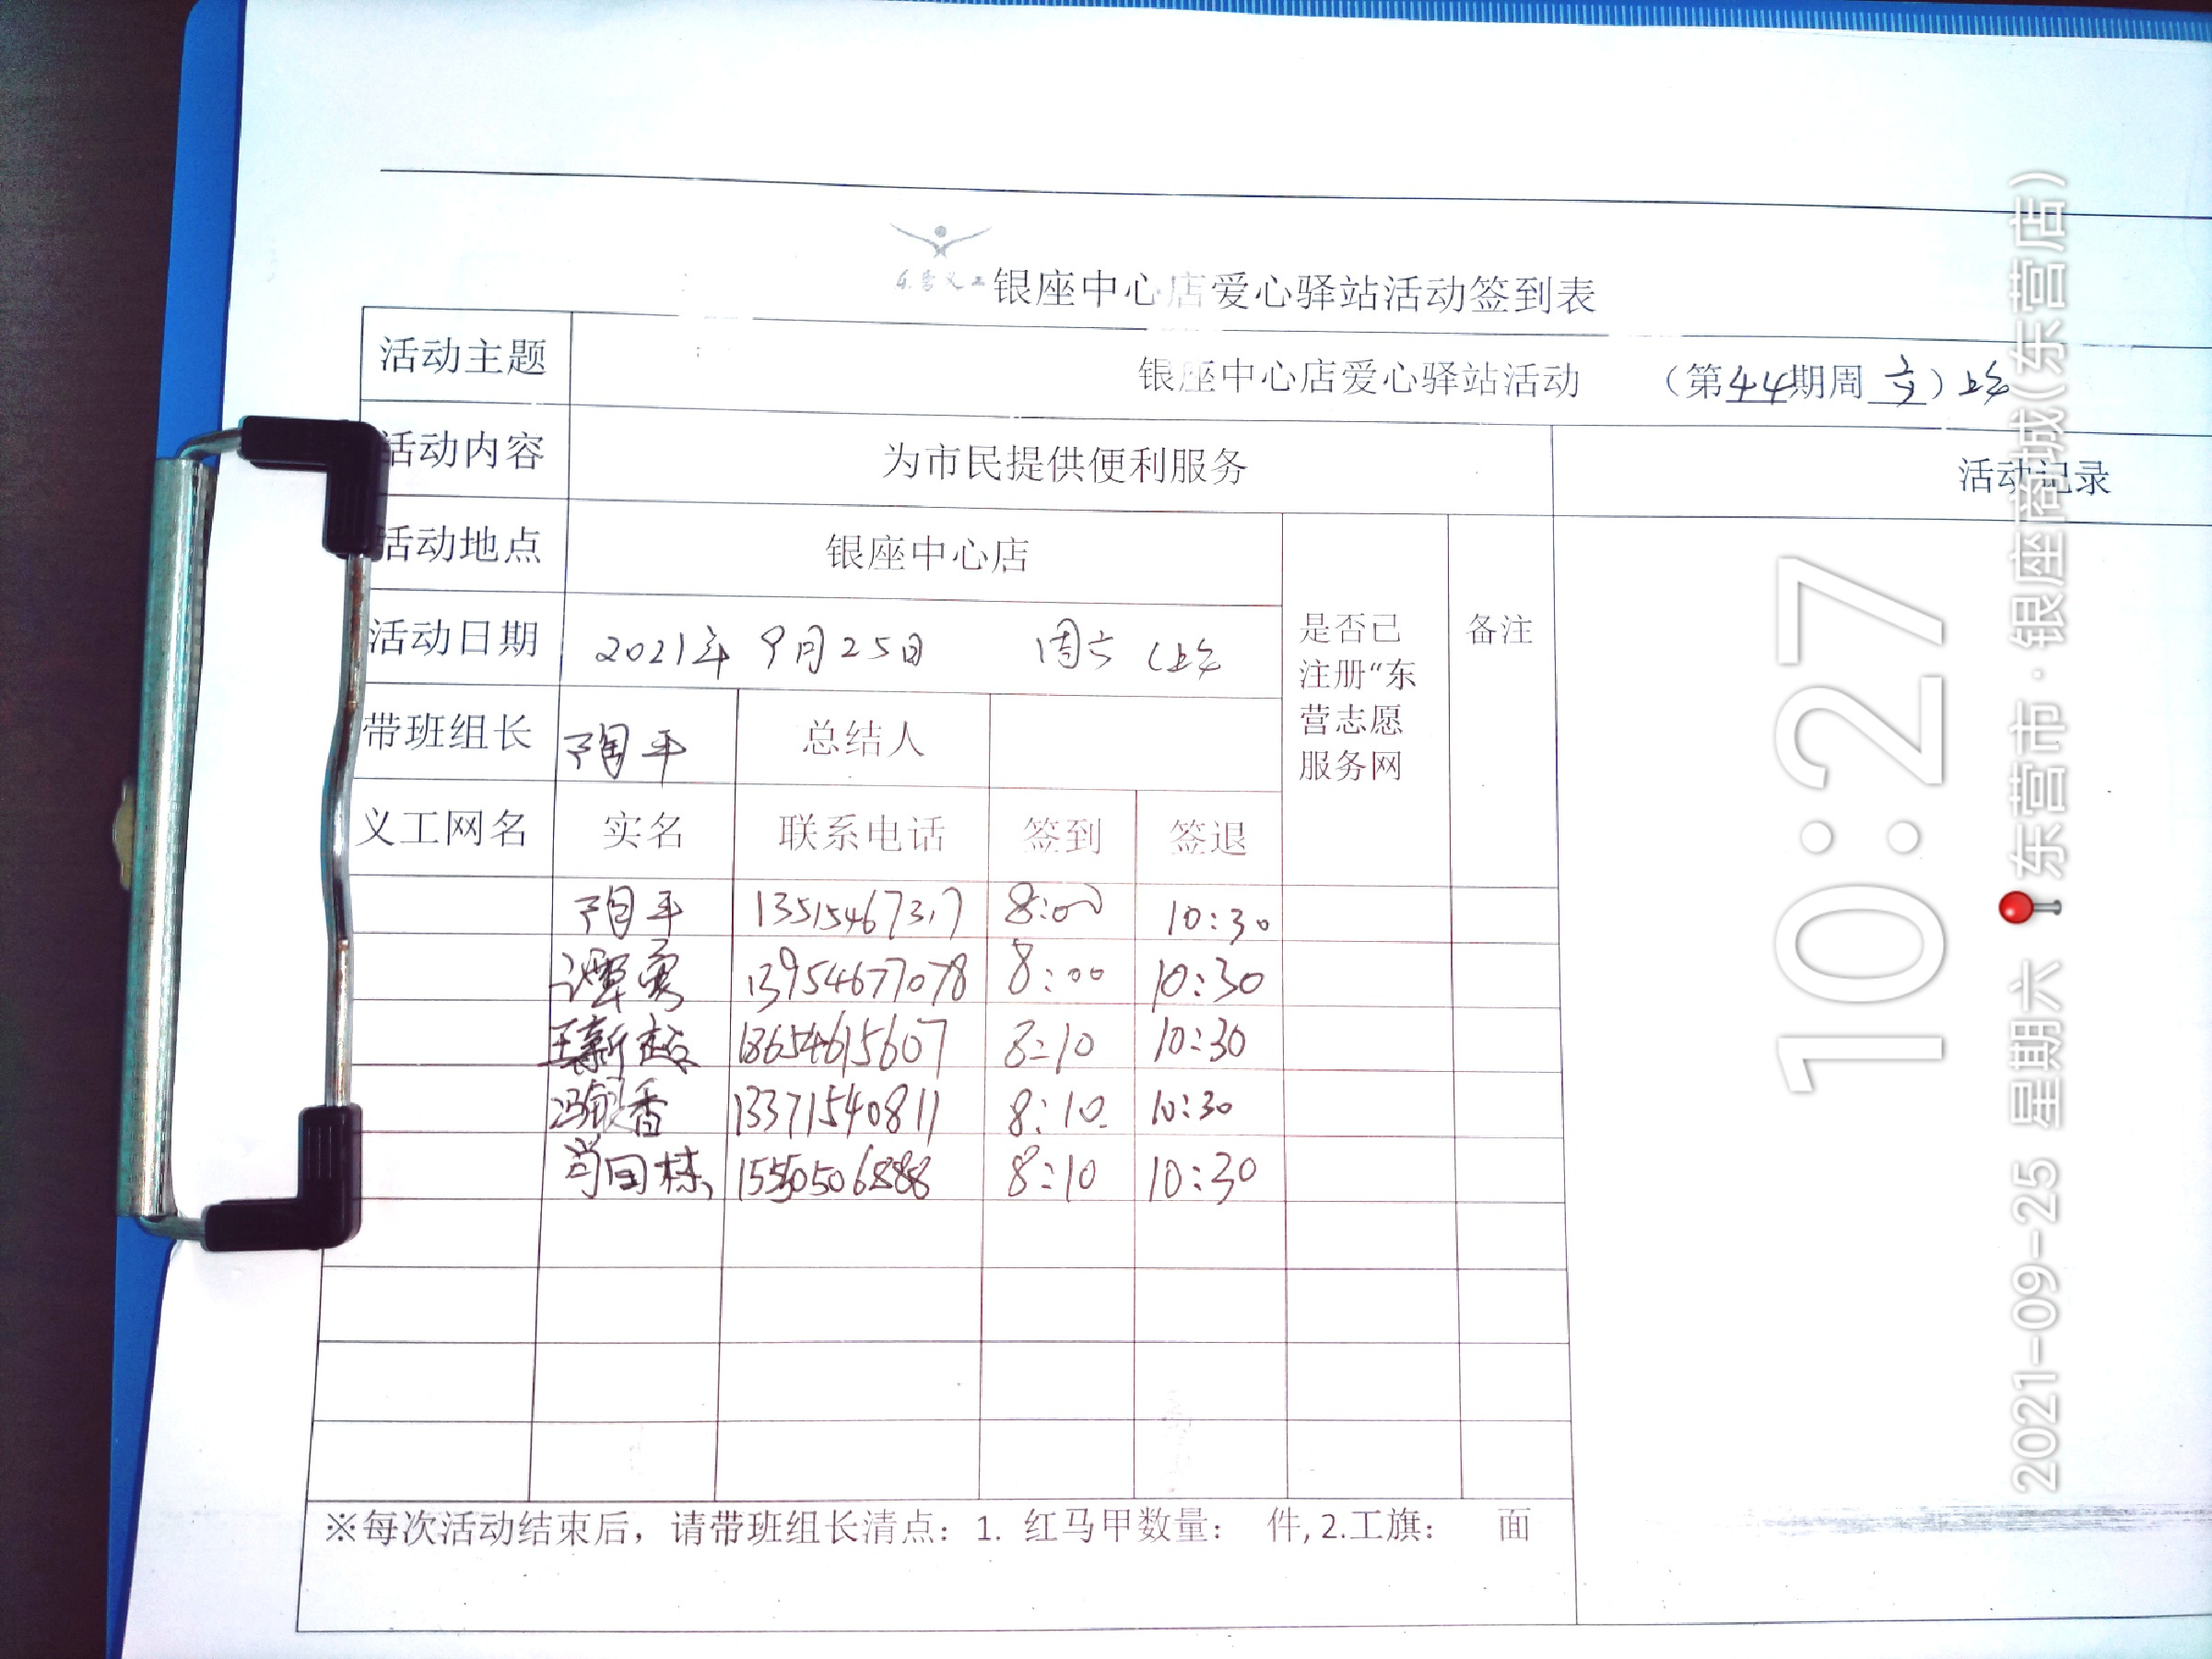 东营义工
银座中心店爱心驿站活动签到表
活动主题 银座中心店爱心驿站活动 （第44期周六）上午
活动内容 为市民提供便利服务 活动记录
活动地点 银座中心店
是否已注册“东营志愿服务网 备注
活动日期 2021年9月25日 周六 (上午
带班组长 陶平 总结人
义工网名 实名 联系电话 签到 签退
陶平 13515467317 8:00 10:30
谭勇 13954677078 8:00 10:30
王新 18654615607 8:10 10:30
冯银香 13371540811 8:10 10:30
15505506888 8:10 10:30
※每次活动结束后，请带班组长清点：1. 红马甲数量： 件, 2.工旗： 面
10:27
2021-09-25 星期六 东营市·银座商城(东营店)